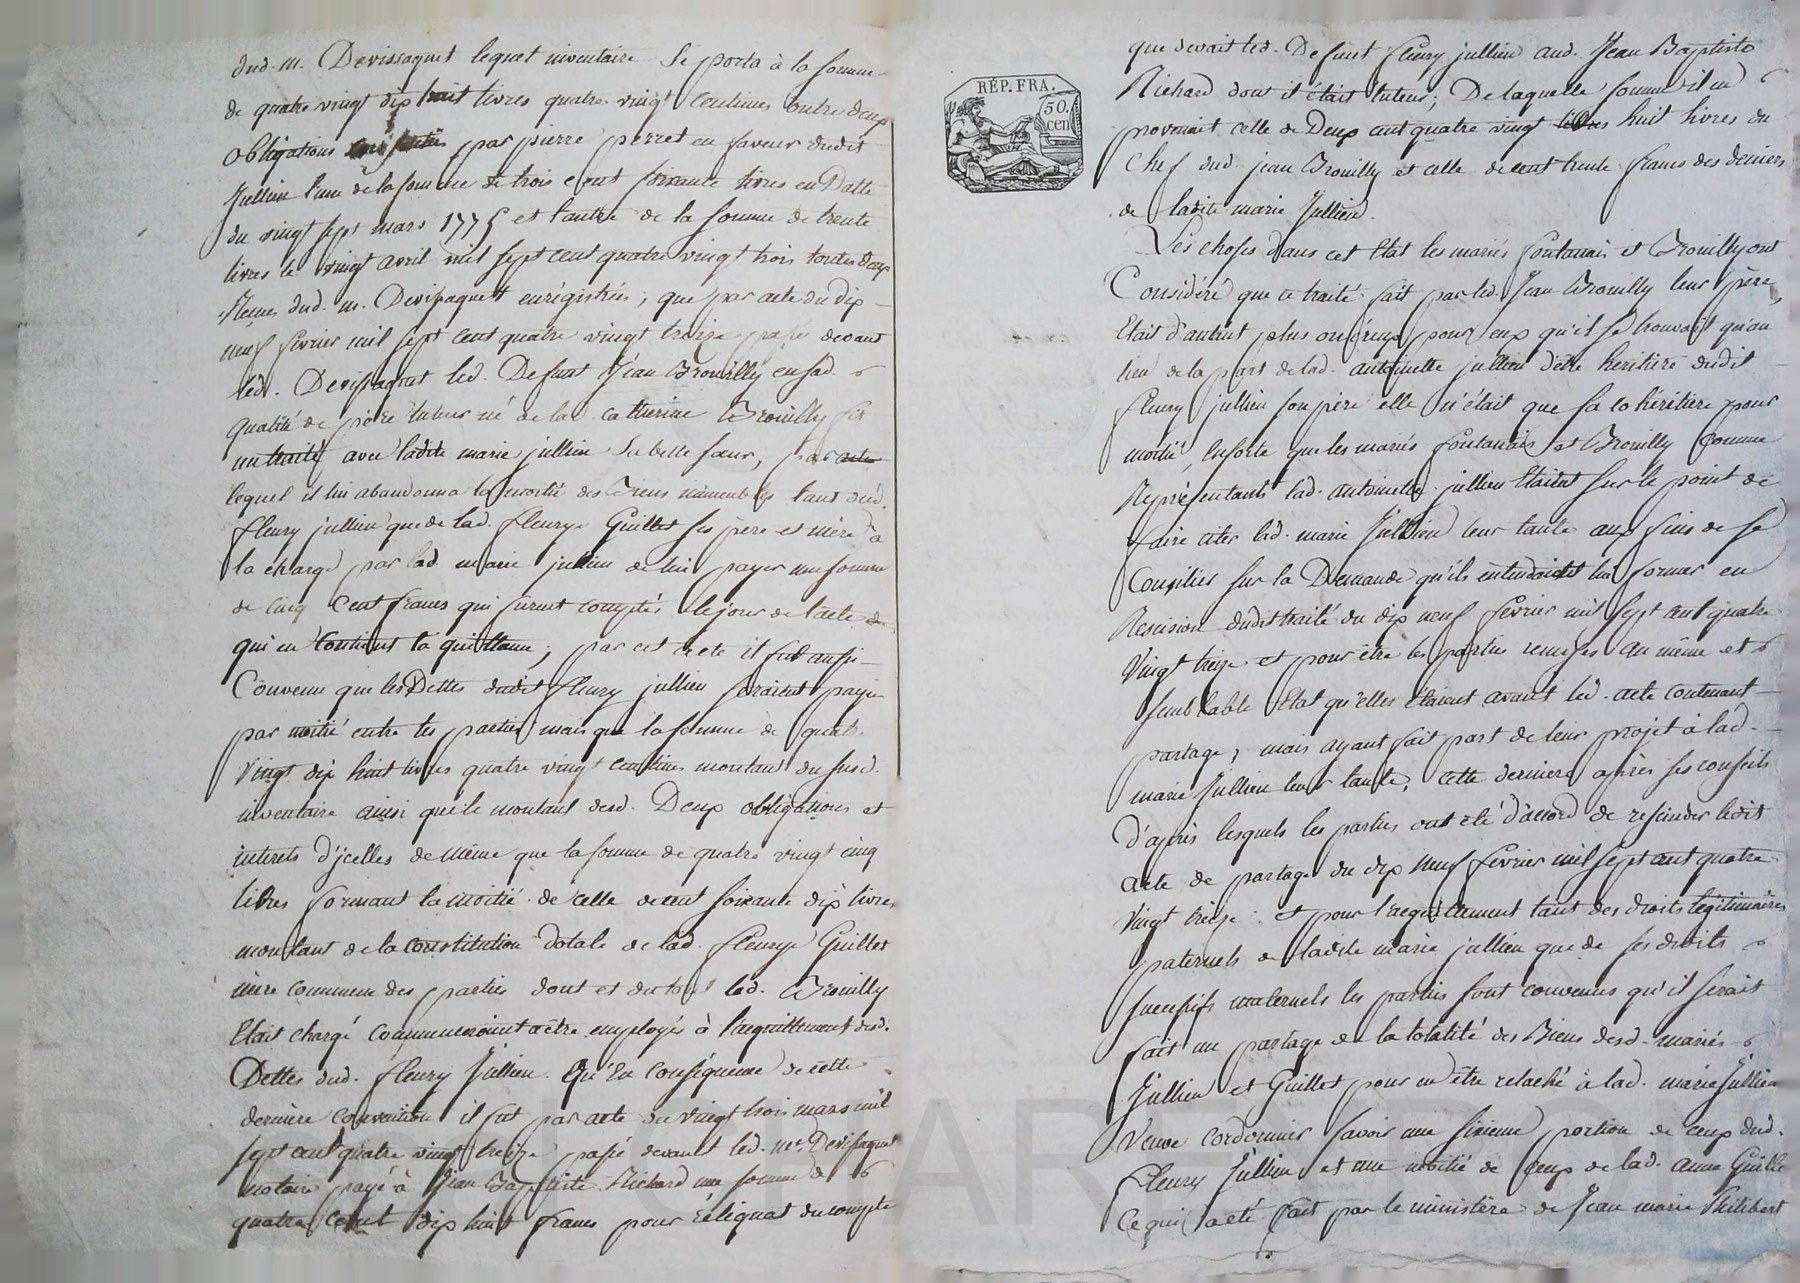 dud. m. Devissaguet lequel inventaire Se porta à la somme
de quatre vingt dix huit livres quatre vingt Centimes outre deux
obligations par pierre perret en faveur dudit
Jullien l'une de la somme de trois cent soixante livres en Datte
du vingt sept mars 1775 et l'autre de la somme de trente
livres le vingt avril mil sept cent quatre vingt trois toutes deux
Reçues dud. m. Devissaguet enrégistrées; que par acte du dix
neuf février mil sept cent quatre vingt treize passé devant
led. Devissaguet led. Defunt Jean Brouilly en sad.
qualité de père tuteur né de lad. Catherine Brouilly fit
un traité avec ladite marie jullien Sa belle sœur, par
lequel il lui abandonna la moitié des Biens immeubles tant dud.
fleury jullien que de lad. fleurye Guillet ses père et mère à
la charge par lad. marie jullien de lui payer une somme
de cinq Cent francs qui furent comptés le jour de l'acte
qui en Contient la quittance; par cet acte il fut aussi
Convenu que les Dettes dudit fleury jullien seraient payées
par moitié entre les parties mais que la somme de quatre
vingt dix huit livres quatre vingt centimes montant du susd.
inventaire ainsi que le montant desd. Deux obligations et
interets d'jcelles de même que la somme de quatre vingt cinq
livres formant la moitié de celle de cent soixante dix livres
montant de la Constitution dotale de lad. fleurye Guillet
mère commune des parties dont et du tout led. Brouilly
Etait chargé commenceroint a être employés à l'acquittement desd.
Dettes dud. fleury Jullien. Qu'En Conséquence de cette
dernière convention il fut par acte du vingt trois mars mil
sept cent quatre vingt treize passé devant led. me. Devissaguet
notaire payé à Jean Baptiste Richard une somme de
quatre Cent dix huit francs pour réliquat du compte
RÉP. FRA.
50.
cen
que devait led. Defunt fleury jullien aud. Jean Baptiste
Richard dont il était tuteur; De laquelle somme il en
provenait celle de Deux cent quatre vingt huit livres du
Chef dud. jean Brouilly et celle de cent trente francs des deniers
de ladite marie Jullien.
Les choses dans cet Etat les mariés fontanais et Brouilly ont
Considéré que ce traité fait par led. Jean Brouilly leur père,
Etait d'autant plus onéreux pour eux qu'il se trouvait qu'au
lieu de la part de lad. antoinette jullien d'etre heritière dudit
fleury jullien son père elle n'était que sa cohéritière pour
moitié, Ensorte que les mariés fontanais et Brouilly Comme
Représentants lad. antoinette jullien Etaient sur le point de
faire citer lad. marie Jullien leur tante aux fins de se
Concilier sur la Demande qu'ils entendaient lui former en
Rescision dudit traité du dix neuf février mil sept cent quatre
Vingt treize et pour être les parties remises au même et
semblable Etat qu'elles étaient avant led. acte contenant
partage, mais ayant fait part de leur projet à lad.
marie Jullien leur tante, cette derniere après ses conseils
D'après lesquels les parties ont été d'accord de rescinder ledit
acte de partage du dix neuf février mil sept cent quatre
Vingt treize: et pour l'acquittement tant des droits legitimaires
paternels de ladite marie jullien que de ses droits
successifs maternels les parties sont convenues qu'il serait
fait un partage de la totalité des Biens desd. mariés
Jullien et Guillet pour en être relaché à lad. marie Jullien
Veuve Cordonnier savoir une sixieme portion de ceux dud.
fleury Jullien et une moitié de Ceux de lad. anne Guillet
Ce qui a été fait par le ministère de Jean marie Philibert